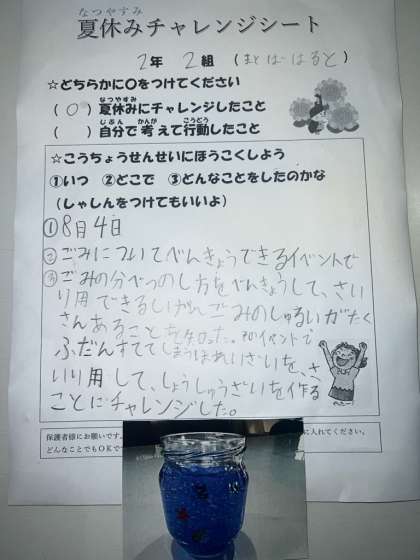 なつやすみ
夏休みチャレンジシート
2年 2組 (まとば はると)
☆どちらかに○をつけてください
なつやすみ
(○) 夏休みにチャレンジしたこと
じぶん かんが こうどう
( ) 自分で考えて行動したこと
☆こうちょうせんせいにほうこくしよう
①いつ ②どこで ③どんなことをしたのかな
(しゃしんをつけてもいいよ)
①8月4日
②ごみについてべんきょうできるイベントで
③ごみの分べつのし方をべんきょうして、さい
り用できるしげんごみのしゅるいがたく
さんあることを知った。そのイベントで
ふだんすててしまうほれいざいを、さ
いり用して、しょうしゅうざいを作る
ことにチャレンジした。
保護者様にお願いです。
に入れてください。
どんなことでもOKです